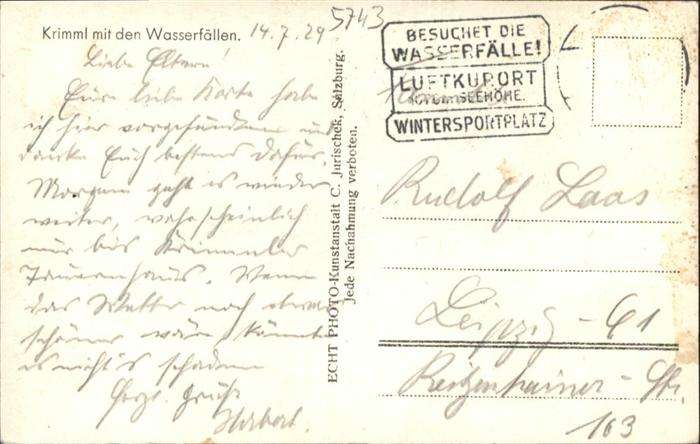 Krimml mit den Wasserfällen. 14.7.29
5743
Liebe Eltern!
Eure liebe Karte habe
ich hier vorgefunden und
danke Euch bestens dafür.
Morgen geht es wieder
weiter, wahrscheinlich
nur bis Krimmler
Tauernhaus. Wenn
das Wetter noch etwas
schöner wär, könnte
es nicht's schaden
Herzl. Grüße
Herbert.
ECHT PHOTO-Kunstanstalt C. Jurischek, Salzburg.
Jede Nachahmung verboten.
BESUCHET DIE
WASSERFÄLLE!
LUFTKURORT
SEEHÖHE.
WINTERSPORTPLATZ
Rudolf Laas
Leipzig - C1
Reitzenhainer-Str.
163